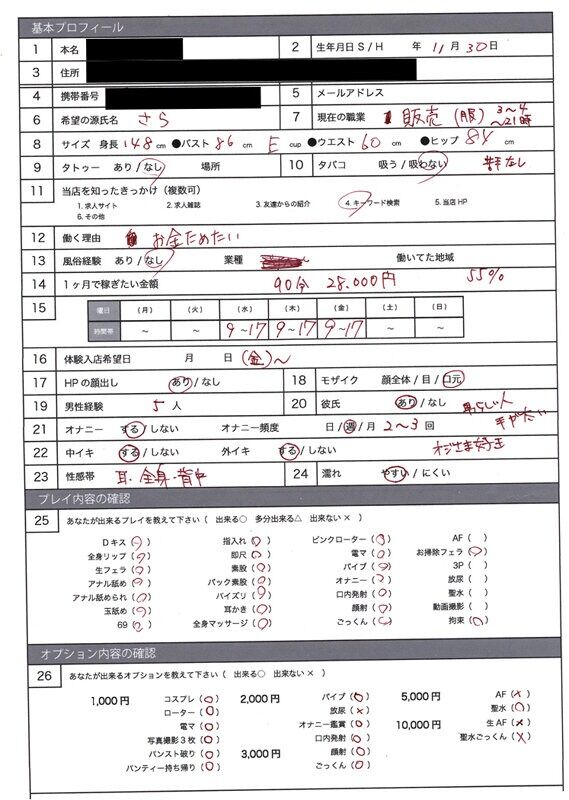 基本プロフィール
1 本名 2 生年月日 S / H 年 11 月 30 日
3 住所
4 携帯番号 5 メールアドレス
6 希望の源氏名 さら 7 現在の職業 販売(服) 3〜4 〜21時
8 サイズ 身長 148 cm ●バスト 86 cm E cup ●ウエスト 60 cm ●ヒップ 84 cm
9 タトゥー あり / なし 場所 10 タバコ 吸う / 吸わない なし
11 当店を知ったきっかけ(複数可)
1. 求人サイト 2. 求人雑誌 3. 友達からの紹介 4. キーワード検索 5. 当店 HP
6. その他
12 働く理由 お金ためたい
13 風俗経験 あり / なし 業種 働いてた地域
14 1ヶ月で稼ぎたい金額 90分 28.000円 55%
15 曜日 (月) (火) (水) (木) (金) (土) (日)
時間帯 〜 〜 9〜17 9〜17 9〜17 〜 〜
16 体験入店希望日 月 日 (金)〜
17 HPの顔出し あり / なし 18 モザイク 顔全体 / 目 / 口元
19 男性経験 5 人 20 彼氏 あり / なし 男らしい人
21 オナニー する / しない オナニー頻度 日 / 週 / 月 2〜3 回
22 中イキ する / しない 外イキ する / しない オジさま好き
23 性感帯 耳・全身・背中 24 濡れ やすい / にくい
プレイ内容の確認
25 あなたが出来るプレイを教えて下さい( 出来る○ 多分出来る△ 出来ない× )
Dキス (○) 指入れ (○) ピンクローター (○) AF ( )
全身リップ (○) 即尺 (○) 電マ (○) お掃除フェラ (○)
生フェラ (○) 素股 (○) バイブ (○) 3P ( )
アナル舐め (○) バック素股 (○) オナニー (○) 放尿 ( )
アナル舐められ (○) パイズリ (○) 口内発射 (○) 聖水 ( )
玉舐め (○) 耳かき (○) 顔射 (○) 動画撮影 ( )
69 (○) 全身マッサージ (○) ごっくん (○) 拘束 (○)
オプション内容の確認
26 あなたが出来るオプションを教えて下さい( 出来る○ 出来ない× )
1,000円 コスプレ (○) 2,000円 バイブ (○) 5,000円 AF (×)
ローター (○) 放尿 (×) 聖水 (○)
電マ (○) オナニー鑑賞 (○) 10,000円 生AF (×)
写真撮影3枚 (○) 口内発射 (○) 聖水ごっくん (×)
パンスト破り (○) 3,000円 顔射 (○)
パンティー持ち帰り (○) ごっくん (○)